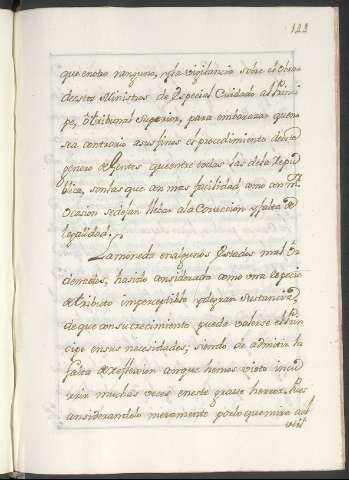 122
que en otra ninguna, y la vigilancia sobre el obrar
de estos Ministros da Especial Cuidado al Princi
pe, ô tribunal Superior, para embarazar que no
sea contrario a sus fines el procedimiento de esta
genero de Gentes que entre todas las de la Repu
blica, son las que con mas facilidad, como con m.r
ocasion se dejan llebar a la Corrección y falta de
legalidad.
La moneda en algunos Estados mal
cimentados, ha sido considerada como vna especie
de tributo imperceptible y de gran Sustancia,
de que con su crecimiento puede valerse el Prin
cipe en sus necesidades; siendo de admitir la
falta de reflexion con que hemos visto incu
rrir muchas veces en este grave herror, Pues
considerandolo meramente por lo que mira a el